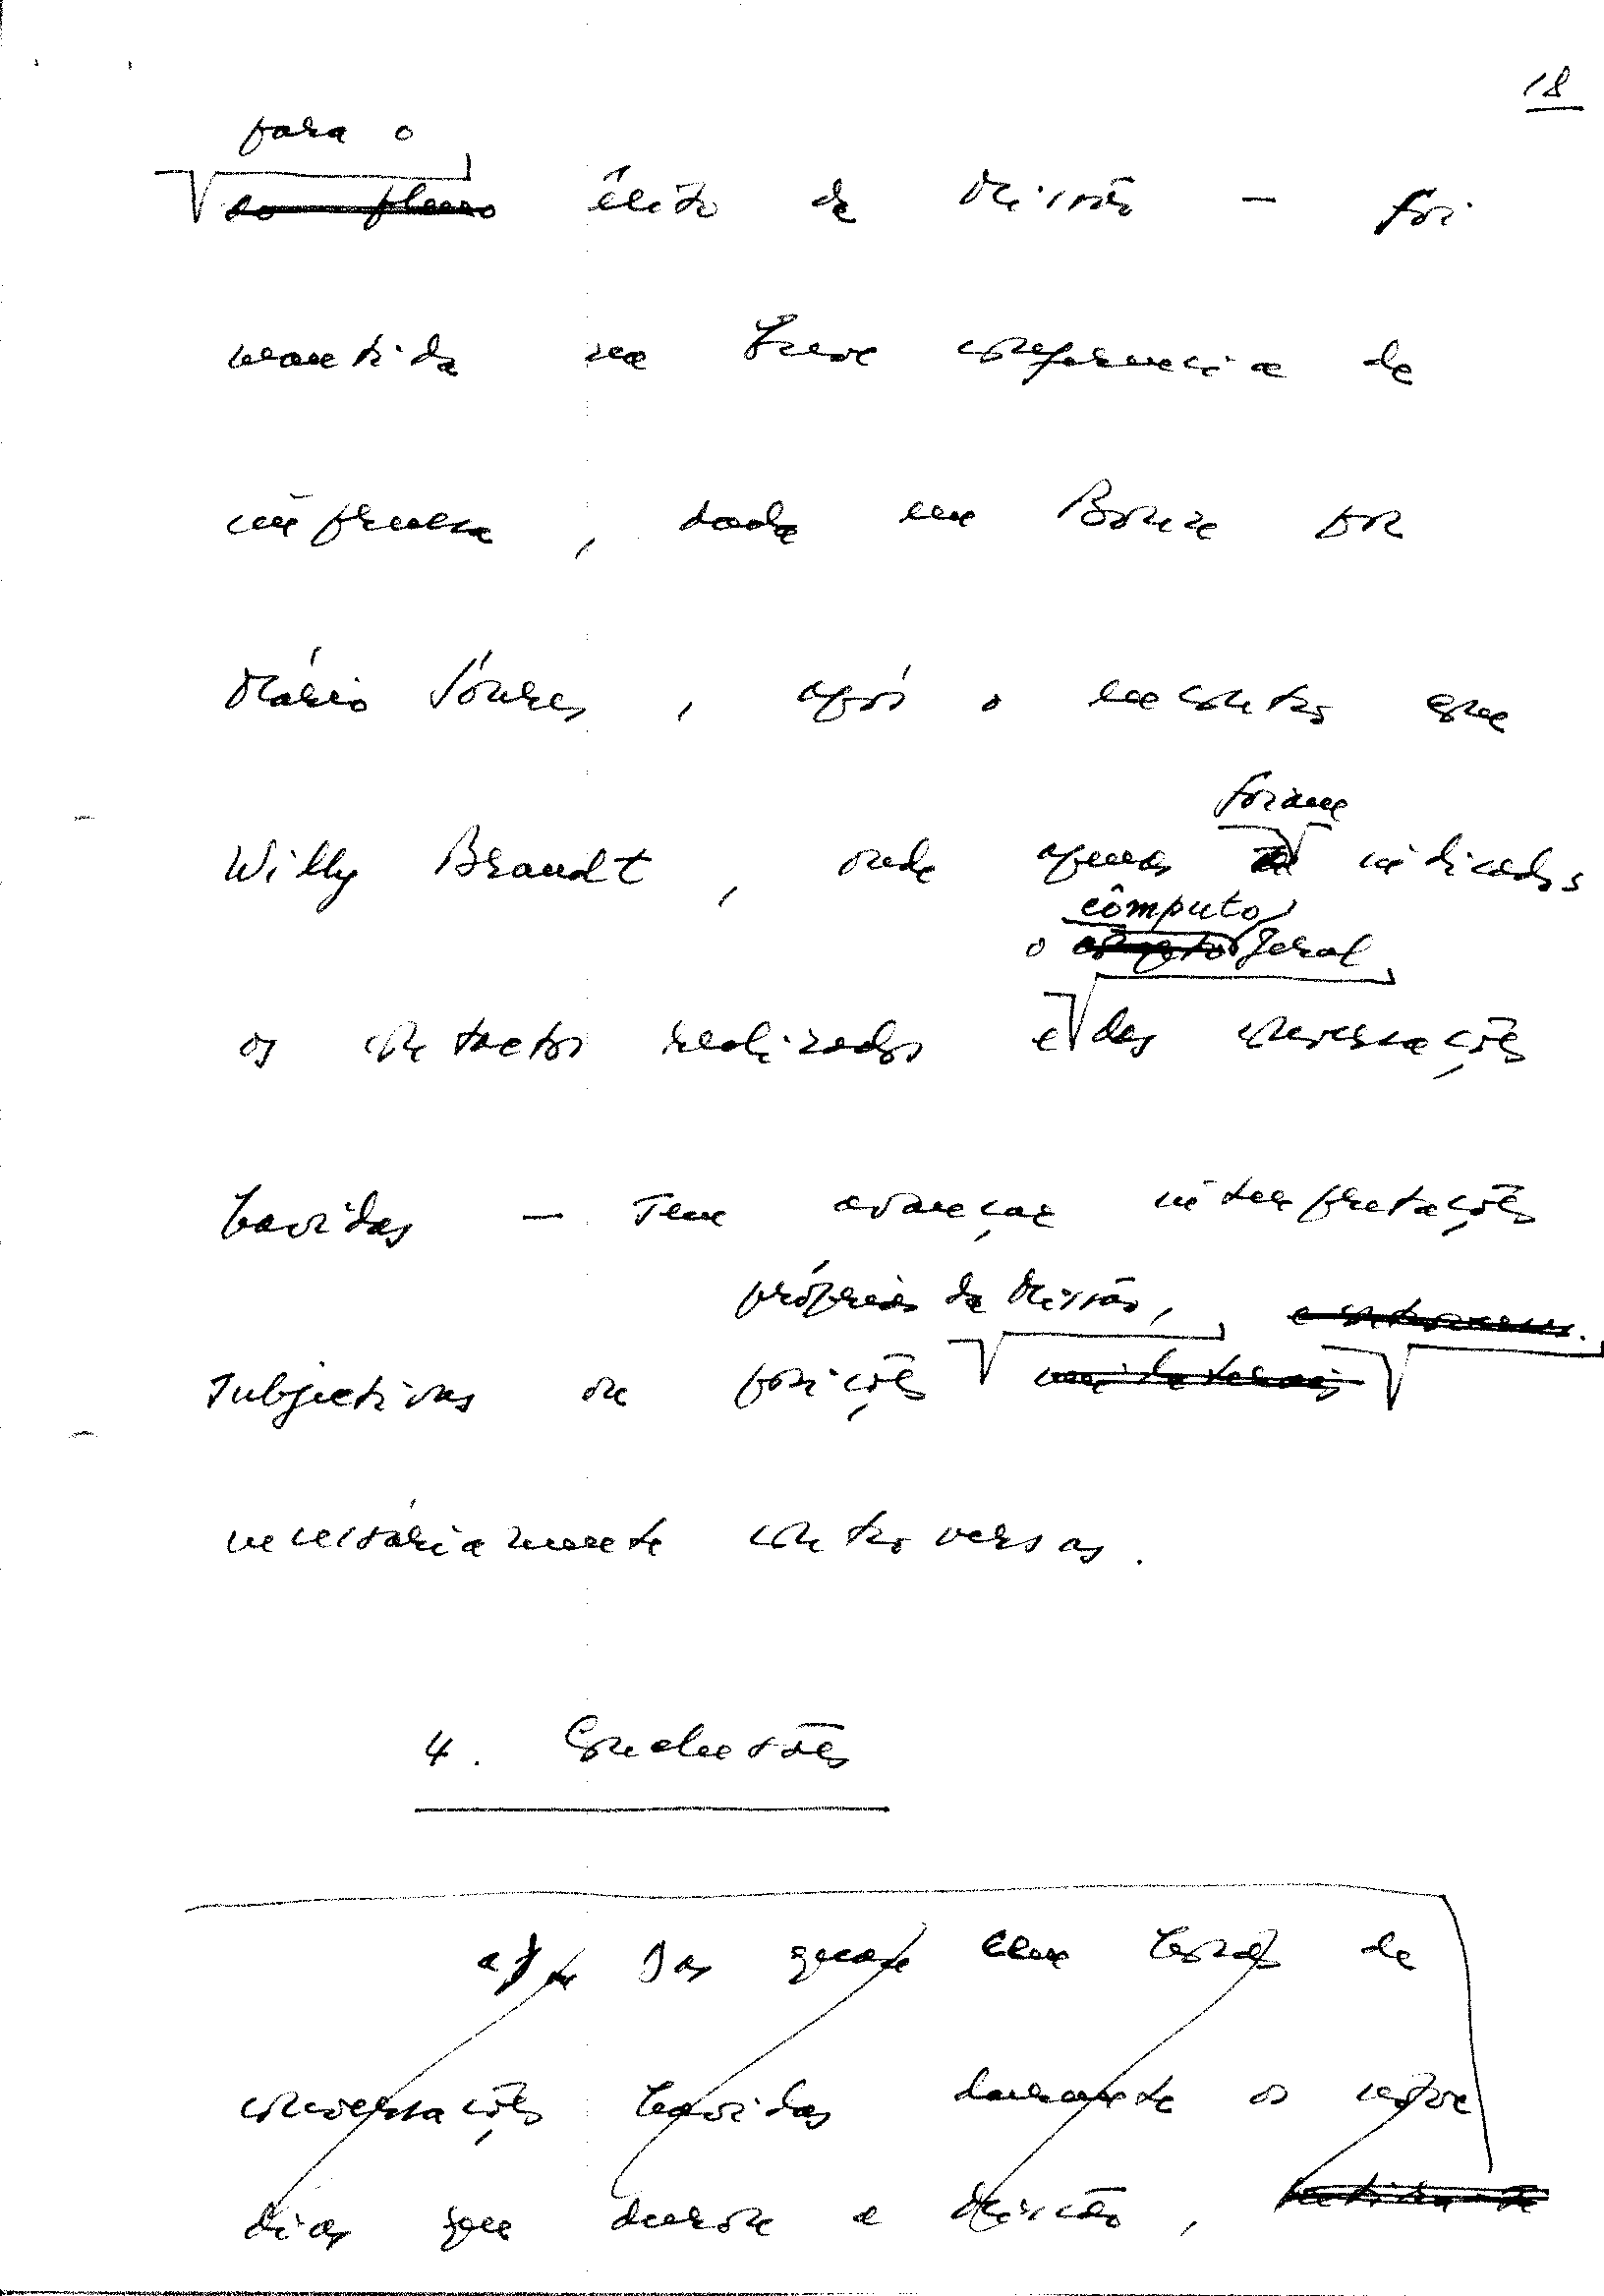 18
para o
êxito da Missão – foi
mantida na breve conferência de
imprensa, dada em Bona por
Mário Soares, após o encontro com
Willy Brandt, onde apenas foram indicados
os contactos realizados e o cômputo geral das conversações
havidas – sem avançar interpretações
subjectivas ou posições próprias da Missão,
necessáriamente controversas.
4. Conclusões
a) Das quase cem horas de
conversações havidas durante os nove
dias que durou a Missão,